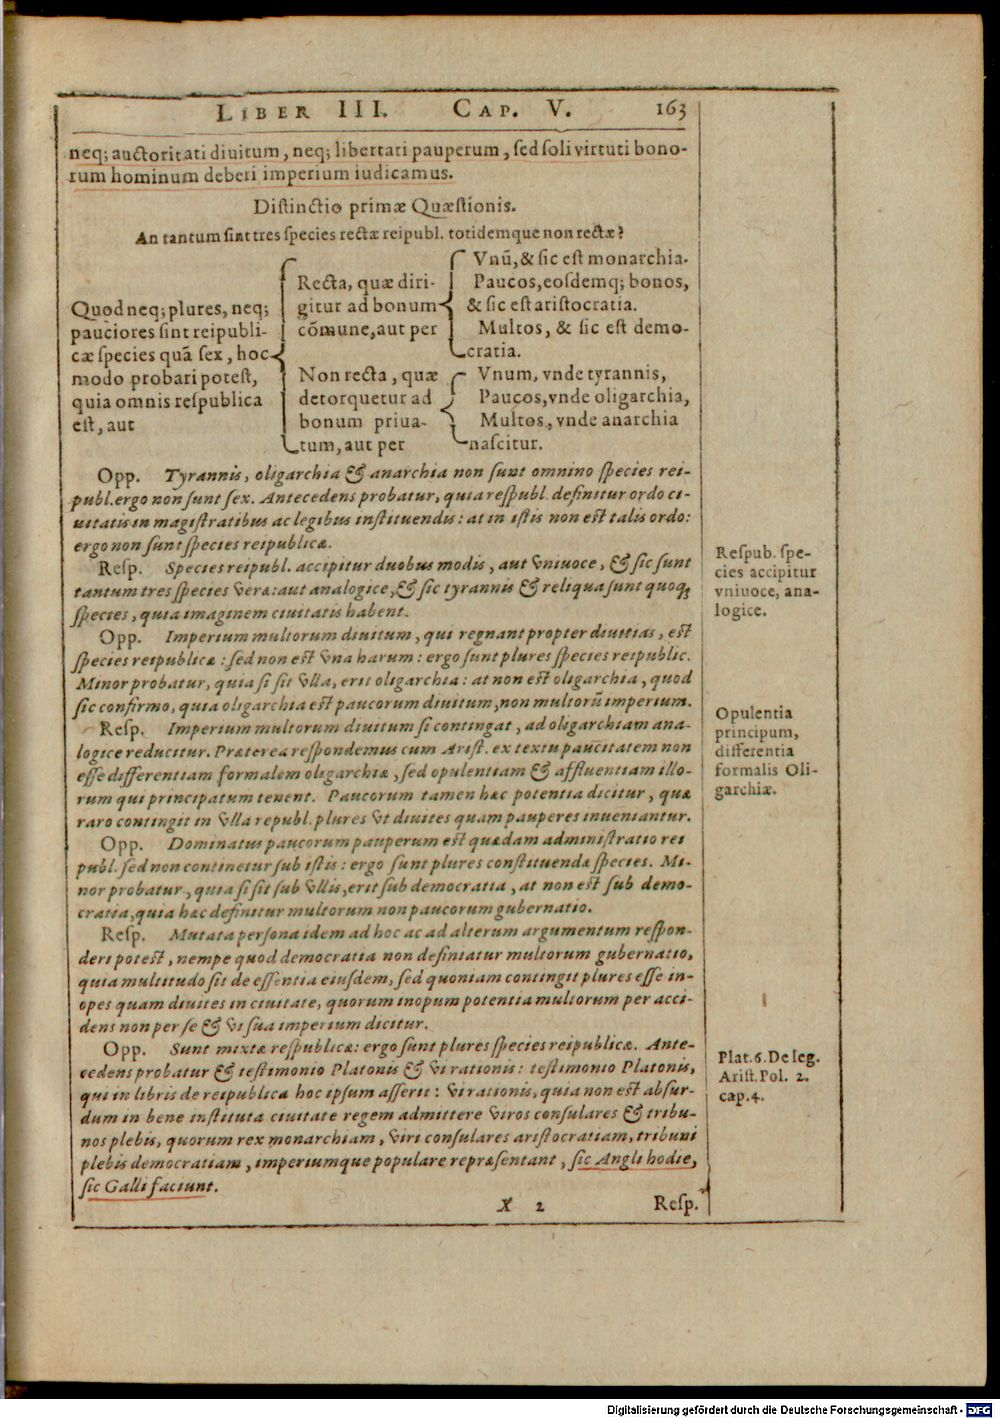 LIBER III. CAP. V. 163
neq; auctoritati diuitum, neq; libertati pauperum, sed soli virtuti bono-
rum hominum deberi imperium iudicamus.
Distinctio primæ Quæstionis.
An tantum sint tres species rectæ reipubl. totidemque non rectæ?
Quod neq; plures, neq;
pauciores sint reipubli-
cæ species quā sex, hoc
modo probari potest,
quia omnis respublica
est, aut
Recta, quæ diri-
gitur ad bonum
cōmune, aut per
Vnū, & sic est monarchia.
Paucos, eosdemq; bonos,
& sic est aristocratia.
Multos, & sic est demo-
cratia.
Non recta, quæ
detorquetur ad
bonum priua-
tum, aut per
Vnum, vnde tyrannis,
Paucos, vnde oligarchia,
Multos, vnde anarchia
nascitur.
Opp. Tyrannis, oligarchia & anarchia non sunt omnino species rei-
publ. ergo non sunt sex. Antecedens probatur, quia respubl. definitur ordo ci-
uitatis in magistratibus ac legibus instituendis: at in istis non est talis ordo:
ergo non sunt species reipublicæ.
Resp. Species reipubl. accipitur duobus modis, aut vniuoce, & sic sunt
tantum tres species veræ: aut analogice, & sic tyrannis & reliqua sunt quoq;
species, quia imaginem ciuitatis habent.
Respub. spe-
cies accipitur
vniuoce, ana-
logice.
Opp. Imperium multorum diuitum, qui regnant propter diuitias, est
species reipublicæ: sed non est vna harum: ergo sunt plures species reipublic.
Minor probatur, quia si sit vlla, erit oligarchia: at non est oligarchia, quod
sic confirmo, quia oligarchia est paucorum diuitum, non multorū imperium.
Resp. Imperium multorum diuitum si contingat, ad oligarchiam ana-
logice reducitur. Præterea respondemus cum Arist. ex textu paucitatem non
esse differentiam formalem oligarchiæ, sed opulentiam & affluentiam illo-
rum qui principatum tenent. Paucorum tamen hæc potentia dicitur, quæ
raro contingit in vlla republ. plures vt diuites quam pauperes inueniantur.
Opulentia
principum,
differentia
formalis Oli-
garchiæ.
Opp. Dominatus paucorum pauperum est quædam administratio rei
publ. sed non continetur sub istis: ergo sunt plures constituendæ species. Mi-
nor probatur, quia si sit sub vllis, erit sub democratia, at non est sub demo-
cratia, quia hæc definitur multorum non paucorum gubernatio.
Resp. Mutata persona idem ad hoc ac ad alterum argumentum respon-
deri potest, nempe quod democratia non definiatur multorum gubernatio,
quia multitudo sit de essentia eiusdem, sed quoniam contingit plures esse in-
opes quam diuites in ciuitate, quorum inopum potentia multorum per acci-
dens non per se & vi sua imperium dicitur.
Opp. Sunt mixtæ respublicæ: ergo sunt plures species reipublicæ. Ante-
cedens probatur & testimonio Platonis & vi rationis: testimonio Platonis,
qui in libris de republica hoc ipsum asserit: vi rationis, quia non est absur-
dum in bene instituta ciuitate regem admittere viros consulares & tribu-
nos plebis, quorum rex monarchiam, viri consulares aristocratiam, tribuni
plebis democratiam, imperiumque populare repræsentant, sic Angli hodie,
sic Galli faciunt.
Plat. 6. De leg.
Arist. Pol. 2.
cap. 4.
X 2 Resp.
Digitalisierung gefördert durch die Deutsche Forschungsgemeinschaft - DFG